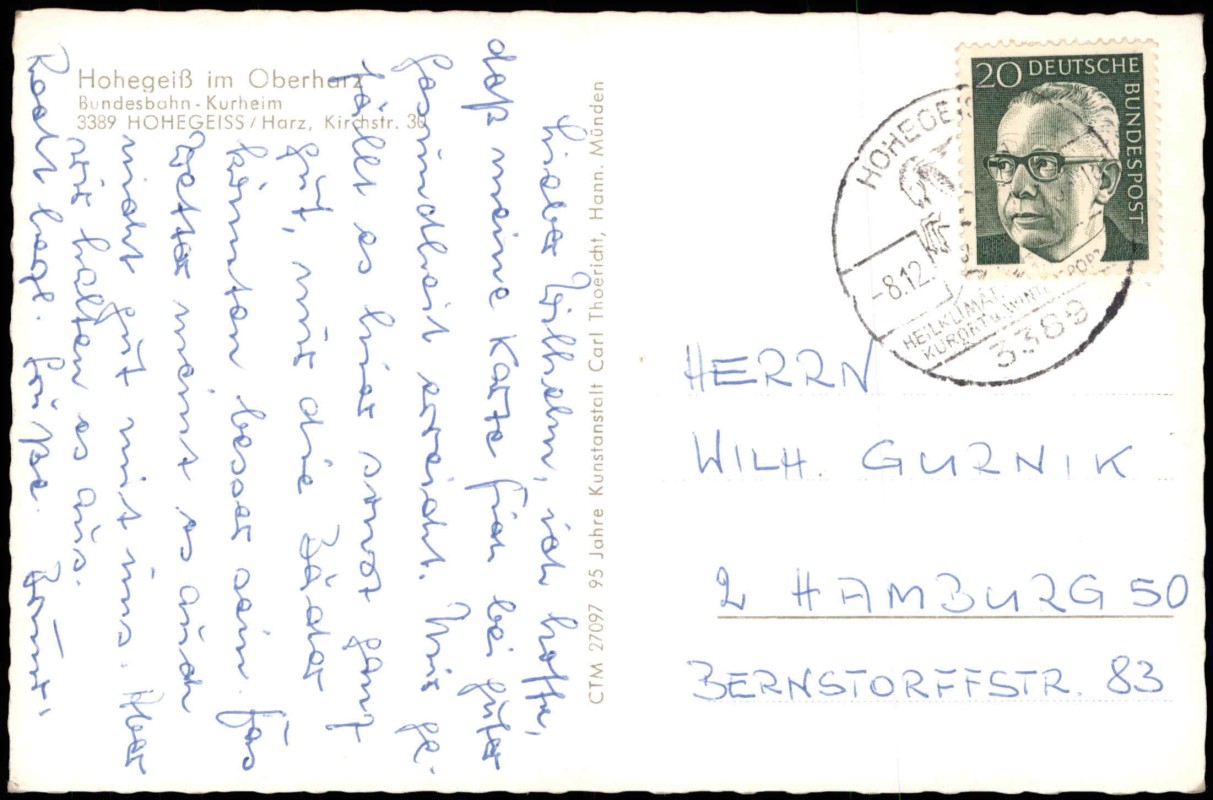 Hohegeiß im Oberharz
Bundesbahn-Kurheim
3389 HOHEGEISS/Harz, Kirchstr. 30
Lieber Wilhelm, ich hoffe,
daß meine Karte Sie bei guter
Gesundheit erreicht. Mir ge-
fällt es hier sonst ganz
gut, nur die Bäder
könnten besser sein. Das
Wetter meint es auch
nicht gut mit uns. Aber
wir halten es aus.
Recht herzl. Grüße.
CTM 27097 95 Jahre Kunstanstalt Carl Thoericht, Hann. Münden
20 DEUTSCHE
BUNDESPOST
HOHEGEI
-8.12.
HEILKLIMAT.
KURORT U. WINT PORT
3389
HERRN
WILH. GURNIK
2 HAMBURG 50
BERNSTORFFSTR. 83